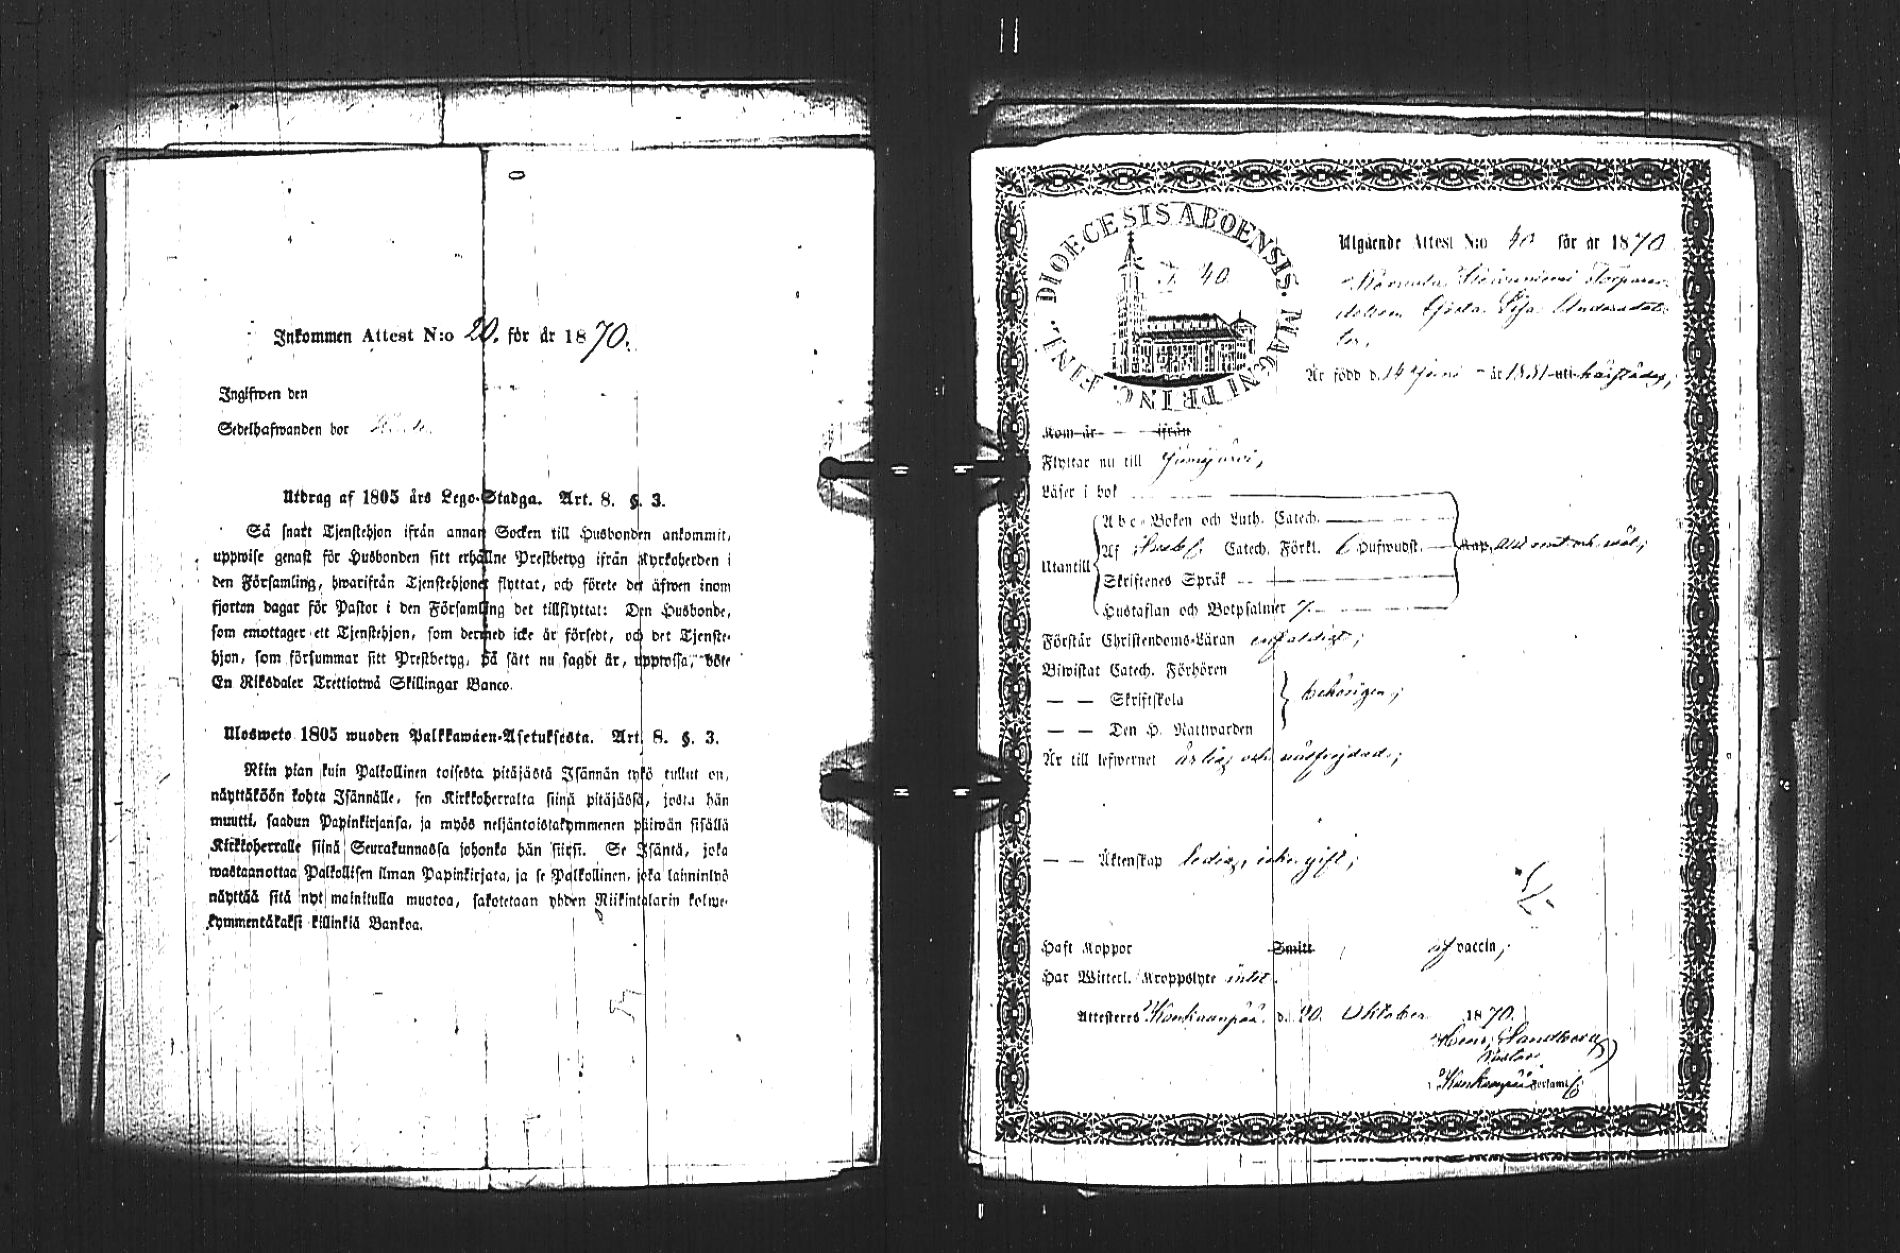 Inkommen Attest N:o 20. för år 1870.
Ingifwen den
Sedelhafwanden bor
Utdrag af 1805 års Lego-Stadga. Art. 8. §. 3.
Så snart Tjenstehjon ifrån annan Socken till Husbonden ankommit,
uppwise genast för Husbonden sitt erhållne Prestbetyg ifrån Kyrkoherden i
den Församling, hwarifrån Tjenstehjonet flyttat, och förete det äfwen inom
fjorton dagar för Pastor i den Församling det tillflyttat: Den Husbonde,
som emottager ett Tjenstehjon, som dermed icke är försedt, och det Tjenste-
hjon, som försummar sitt Prestbetyg, på sätt nu sagdt är, uppwisa, böte
En Riksdaler Trettiotwå Skillingar Banco.
Ulosweto 1805 wuoden Palkkawäen-Asetuksesta. Art. 8. §. 3.
Niin pian kuin Palkollinen toisesta pitäjästä Isännän tykö tullut on,
näyttäköön kohta Isännälle, sen Kirkkoherralta siinä pitäjässä, josta hän
muutti, saadun Papinkirjansa, ja myös neljäntoistakymmenen päiwän sisällä
Kirkkoherralle siinä Seurakunnassa johonka hän siirsi. Se Isäntä, joka
wastaanottaa Palkollisen ilman Papinkirjata, ja se Palkollinen, joka laiminlyö
näyttää sitä nyt mainitulla muotoa, sakotetaan yhden Riikintalarin kolme-
kymmentäkaksi killinkiä Bankoa.
DIOECESIS ABOENSIS. MAGNI PRINC. FINL.
40
Utgående Attest N:o 40 för år 1870
Lisa Andersdot-
ter.
Är född d. 14 Juni - år 1851 uti härstädes;
Kom år - - ifrån
Flyttar nu till Jämijärvi,
Läser i bok
Utantill
Abc-Boken och Luth. Catech.
Af Catech. Förkl. 6 Hufwudst.
Skriftenes Språk
Hustaflan och Botpsalmer 7.
Förstår Christendoms-Läran enfaldigt;
Biwistat Catech. Förhören
— — Skriftskola
— — Den H. Nattwarden
behörigen;
Är till lefwernet ärlig och välfrejdad;
— — Äktenskap ledig, icke gift;
Haft Koppor Smitt af vaccin,
Har Witterl. Kroppslyte intet.
Attesteres Kankaanpää d. 20. Oktober 1870.
Henr. Sandberg
Pastor
i Kankaanpää Församl.